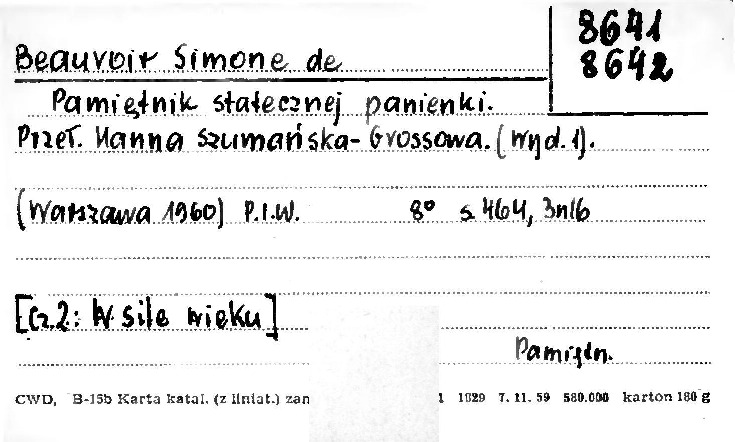 8641
8642
Beauvoir Simone de
Pamiętnik statecznej panienki.
Przeł. Hanna Szumańska-Grossowa. (Wyd. 1).
(Warszawa 1960) P.I.W. 8° s. 464, 3nlb
[Cz. 2: W sile wieku]
Pamiętn.
CWD, B-15b Karta katal. (z liniat.) zam 1 1829 7. 11. 59 580.000 karton 180 g